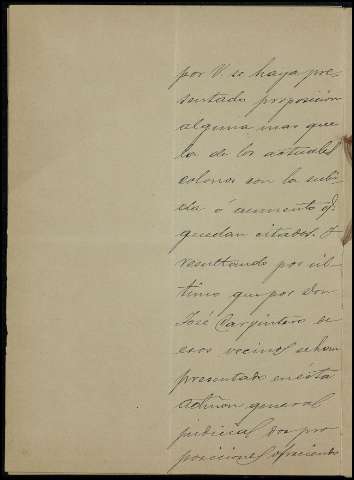 por V. se haya pre-
sentado proposición
alguna mas que
la de los actuales
colonos con la subi-
da ó aumento q.
quedan citados. Y
resultando por úl-
timo que por Don
José Carpintero de
esos vecinos se han
presentado en esta
Admon general
judicial dos pro
posiciones ofreciendo